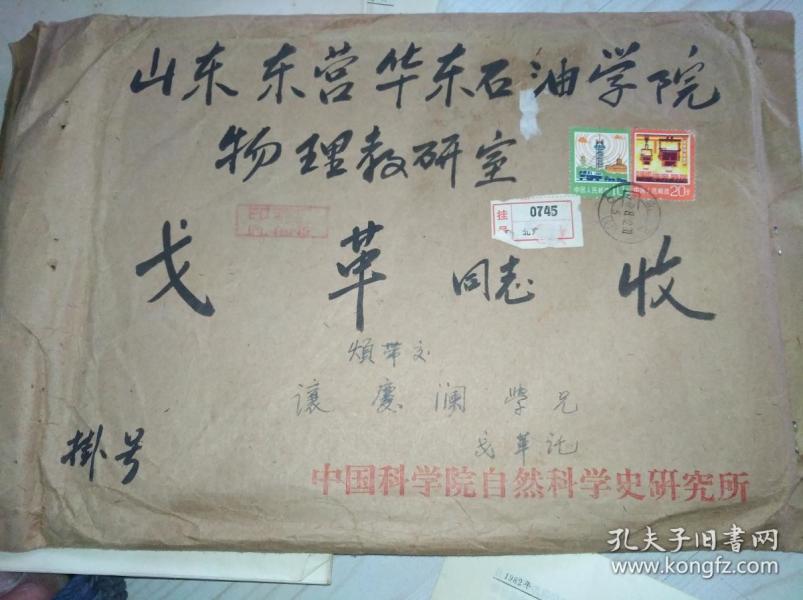 山东东营华东石油学院
物理教研室
中国人民邮政
10分
中国人民邮政
20分
挂号
0745
戈革同志收
烦带交
讓慶澜學兄
戈革託
掛号
中国科学院自然科学史研究所
1982年
孔夫子旧书网
www.kongfz.com